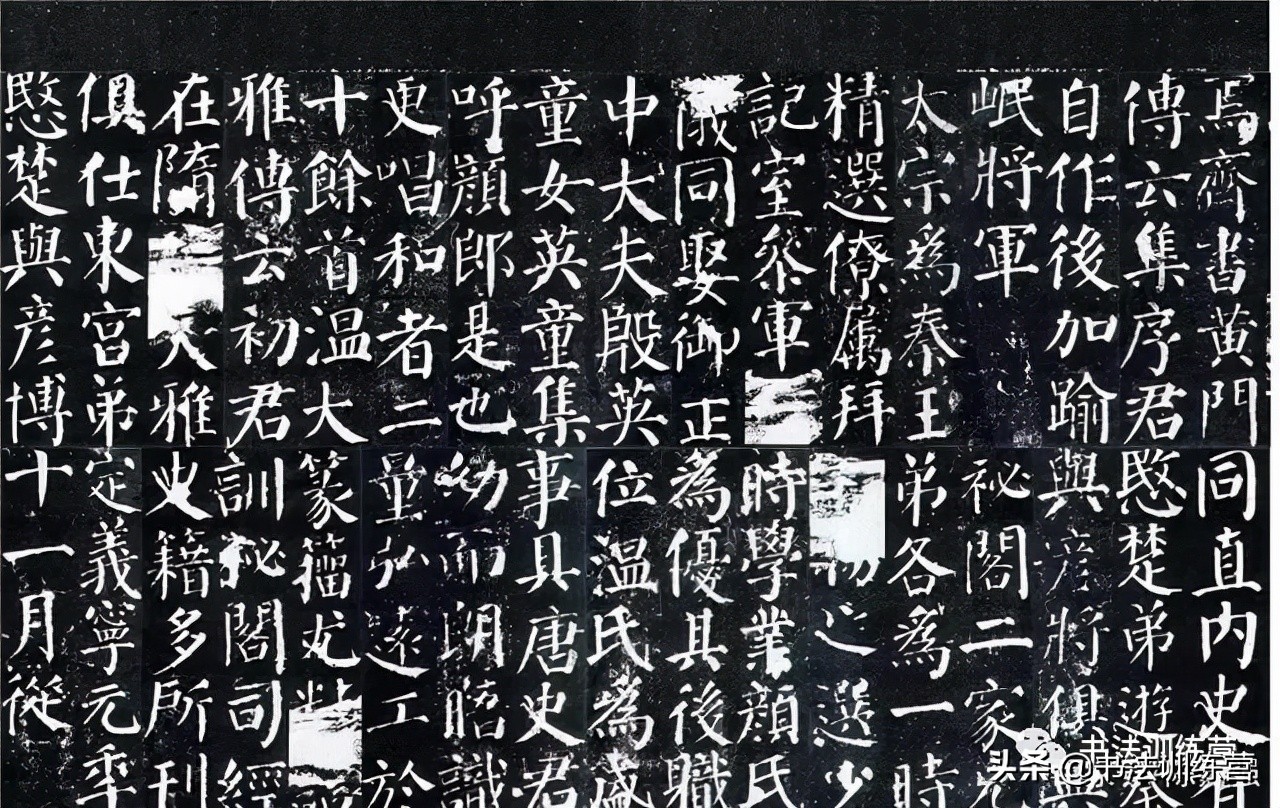 焉齊書黄門
傳云集序君
自作後加踰
岷將軍
太宗爲秦王
精選僚属拜
記室叅軍
儀同娶御正
中大夫殷英
童女英童集
呼顔郎是也
更唱和者二
十餘首温大
雅傳云初君
在隋大雅
俱仕東宫弟
愍楚與彦博
同直内史省
愍楚弟遊秦
與彦將俱
祕閣二家兄
弟各爲一時
物之選少
時學業顔氏
為優其後職
位温氏為盛
事具唐史君
幼而朗晤識
量弘遠工於
篆籀尤精
訓秘閣司經
史籍多所刊
定義寧元年
十一月從
书法训练营
头条@书法训练营